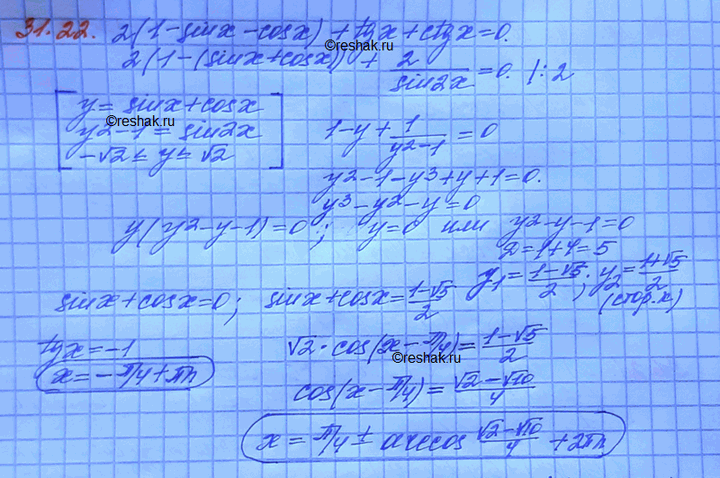 31.22. 2(1-sinx-cosx)+tgx+ctgx=0.
©reshak.ru
2(1-(sinx+cosx))+2/sin2x=0. |:2
[y=sinx+cosx
y2-1=sin2x
-√2≤y≤√2]
1-y+1/(y2-1)=0
y2-1-y3+y+1=0.
y3-y2-y=0
y(y2-y-1)=0; y=0 или y2-y-1=0
D=1+4=5
y1=(1-√5)/2; y2=(1+√5)/2
(стор.к)
sinx+cosx=0; sinx+cosx=(1-√5)/2
tgx=-1
x=-π/4+πn
√2·cos(x-π/4)=(1-√5)/2
©reshak.ru
cos(x-π/4)=(√2-√10)/4
x=π/4±arccos (√2-√10)/4+2πn